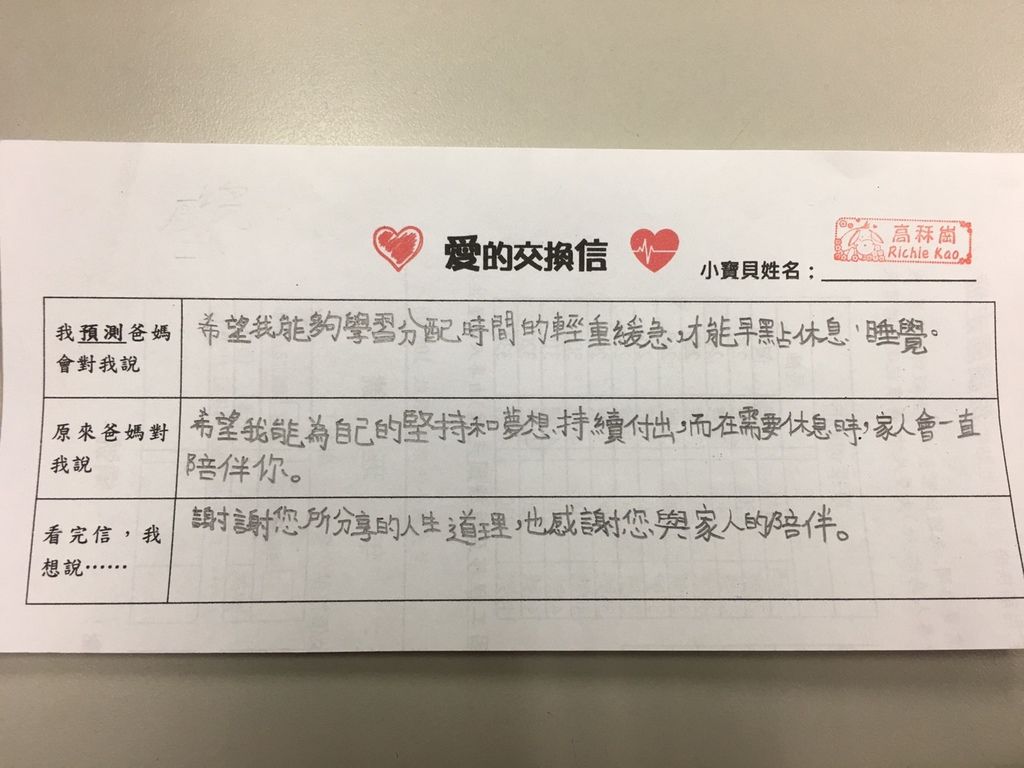 愛的交換信
小寶貝姓名：
高秝崗
Richie Kao
我預測爸媽
會對我說
希望我能夠學習分配時間的輕重緩急，才能早點休息、睡覺。
原來爸媽對
我說
希望我能為自己的堅持和夢想持續付出，而在需要休息時，家人會一直
陪伴你。
看完信，我
想說⋯⋯
謝謝您所分享的人生道理，也感謝您與家人的陪伴。